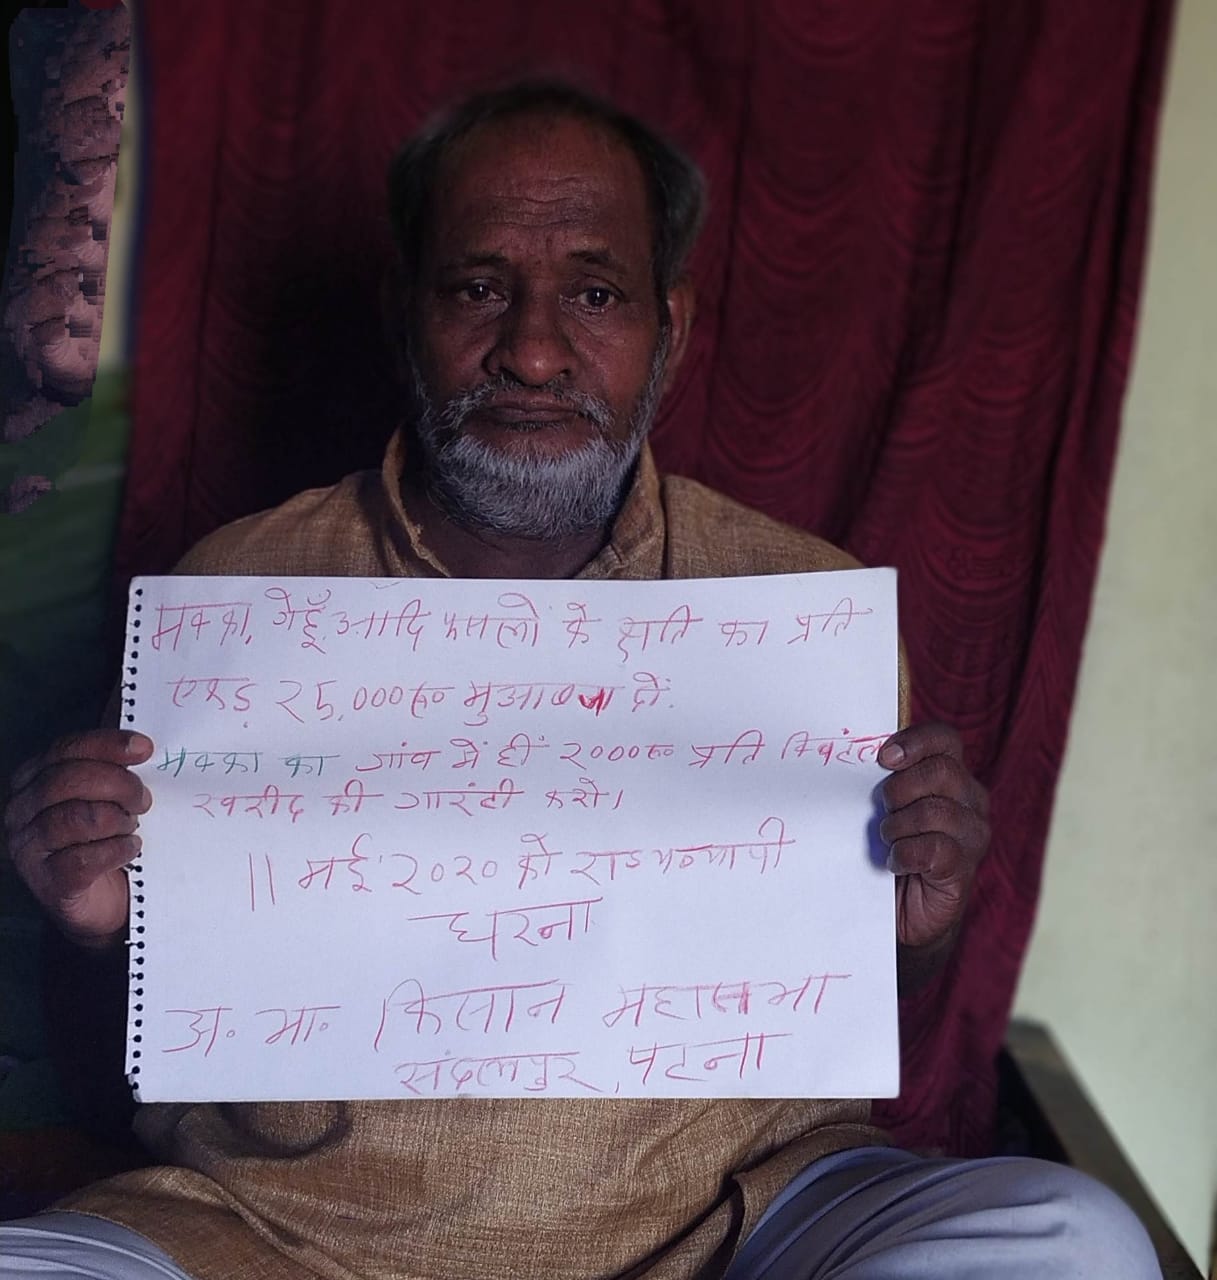 मक्का, गेहूँ आदि फसलों के क्षति का प्रति
एकड़ २5,000रु० मुआवजा दो.
मक्का का गांव में ही २000रु० प्रति क्विंटल
खरीद की गारंटी करो।
11 मई २०२० को राज्यव्यापी
धरना
अ. भा. किसान महासभा
संदलपुर, पटना